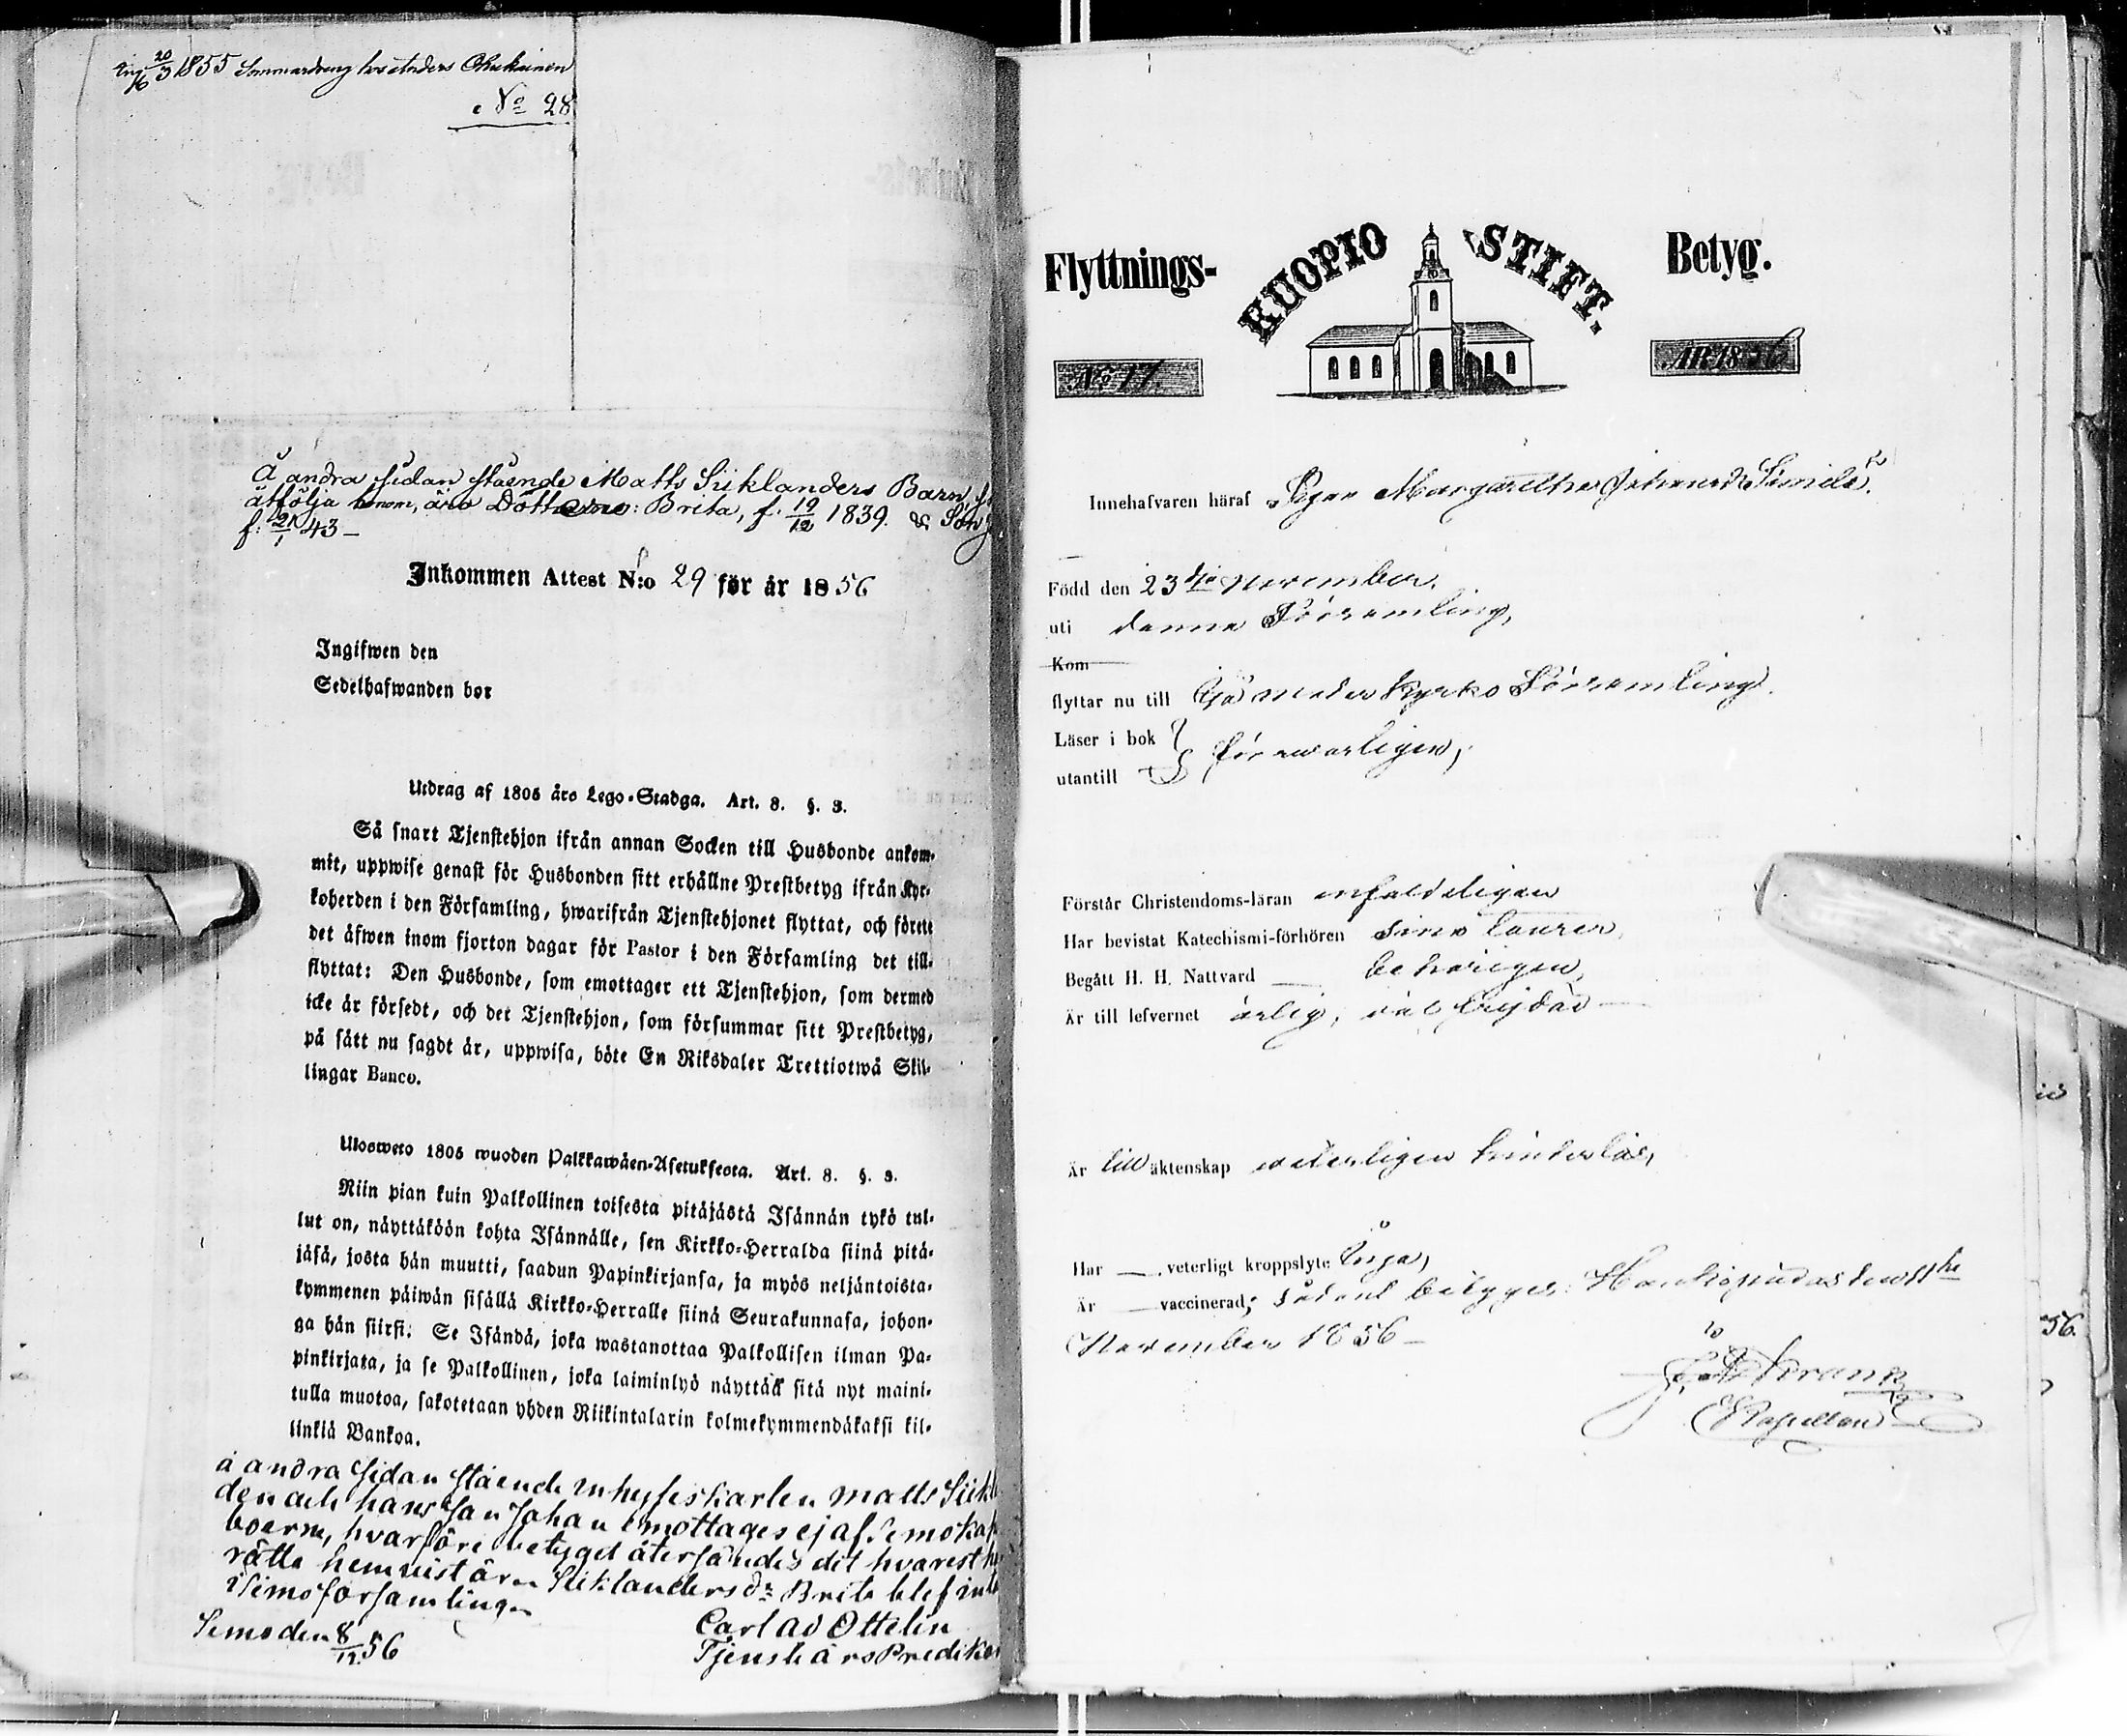 1855 hos Anders
No 28
Å andra sidan stående Matts Siiklanders Barn
åtfölja honom, äro Döttrarne: Brita, f. 19/12 1839. & Son
f: 21/1 43 –
Inkommen Attest N:o 29 för år 1856
Ingifwen den
Sedelhafwanden bor
Utdrag af 1805 års Lego-Stadga. Art. 8. §. 3.
Så snart Tjenstehjon ifrån annan Socken till Husbonde ankom-
mit, uppwise genast för Husbonden sitt erhållne Prestbetyg ifrån Kyr-
koherden i den Församling, hwarifrån Tjenstehjonet flyttat, och förete
det äfwen inom fjorton dagar för Pastor i den Församling det till-
flyttat: Den Husbonde, som emottager ett Tjenstehjon, som dermed
icke är försedt, och det Tjenstehjon, som försummar sitt Prestbetyg,
på sätt nu sagdt är, uppwisa, böte En Riksdaler Trettiotwå Skil-
lingar Banco.
Ulosweto 1805 wuoden Palkkawäen-Asetuksesta. Art. 8. §. 3.
Niin pian kuin Palkollinen toisesta pitäjästä Isännän tykö tul-
lut on, näyttäköön kohta Isännälle, sen Kirkko-Herralda siinä pitä-
jäsä, josta hän muutti, saadun Papinkirjansa, ja myös neljäntoista-
kymmenen päiwän sisällä Kirkko-Herralle siinä Seurakunnasa, johon-
ga hän siirsi: Se Isändä, joka wastanottaa Palkollisen ilman Pa-
pinkirjata, ja se Palkollinen, joka laiminlyö näyttää sitä nyt maini-
tulla muotoa, sakotetaan yhden Riikintalarin kolmekymmendäkaksi kil-
linkiä Bankoa.
å andra sidan stående inhyseskarlen Matts
den och hans Son Johan emottages ej af Simo
boerne, hvarföre betyget återsändes dit hvarest
rätta hemvist är. Siiklanders dr Brita blef
i Simo församlingen
Simo den 8/12 56
Carl Ad Ottelin
Tjensteårs Predikan
Flyttnings-
KUOPIO STIFT.
Betyg.
No 17.
ÅR 1856
Innehafvaren häraf Pigan Margaretha Johansdr Simila
Född den 23dje November,
uti denna Församling,
Kom
flyttar nu till Ijo Moderkyrko Församling.
Läser i bok
utantill försvarligen,
Förstår Christendoms-läran enfaldeligen
Har bevistat Katechismi-förhören sina
Begått H. H. Nattvard behörigen,
Är till lefvernet ärlig, väl frejdad
Är till äktenskap veterligen hinderlös,
Har veterligt kroppslyte Inga,
Är vaccinerad; sådant betygas: Haukipudas den 11te
November 1856 –
Frank
Kapellan
56.